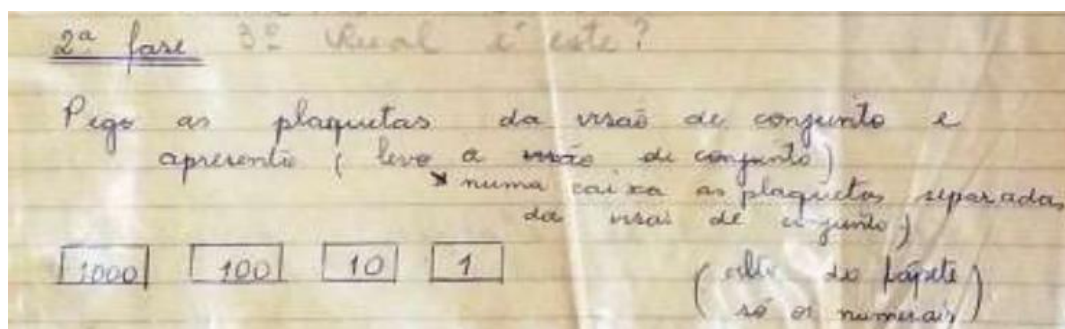 2ª fase 3º Qual é este?
Pego as plaquetas da visão de conjunto e
apresento (levo a visão de conjunto)
numa caixa as plaquetas separadas
da visão de conjunto)
1000 100 10 1
do tapete
só os numerais)